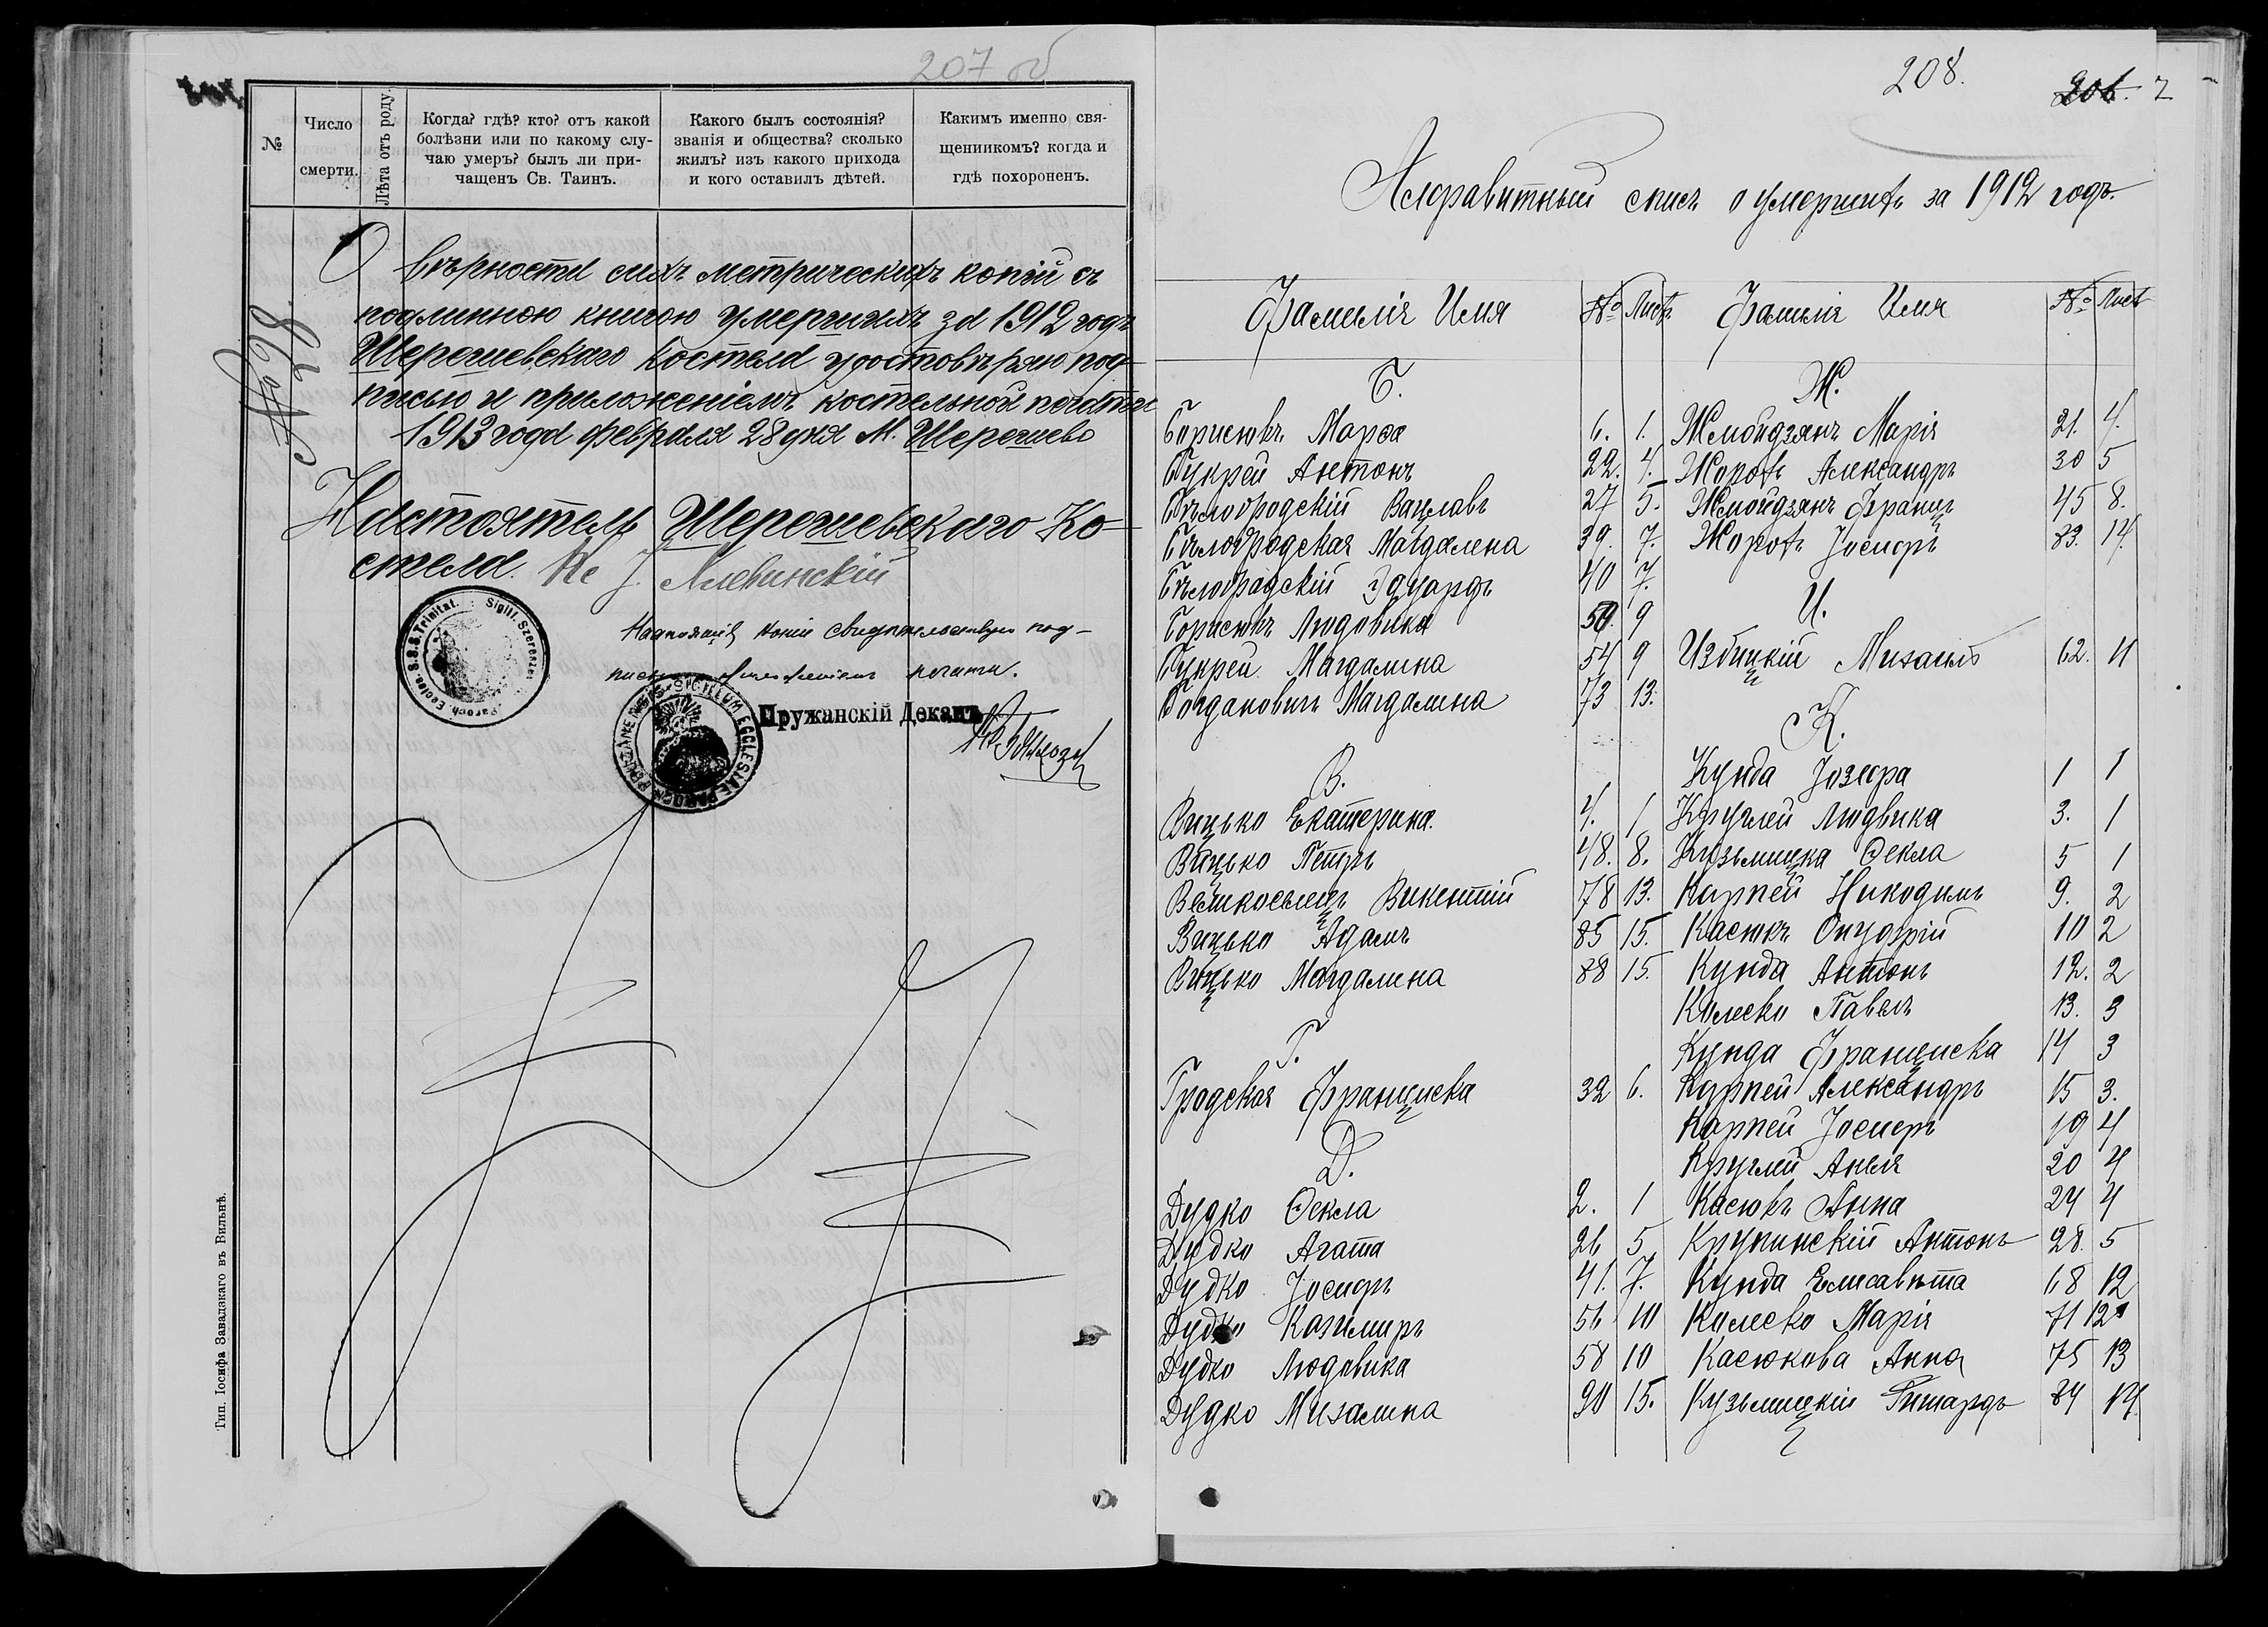 207 об
№
Число
смерти.
Лѣта отъ роду.
Когда? гдѣ? кто? отъ какой
болѣзни или по какому слу-
чаю умеръ? былъ ли при-
чащенъ Св. Таинъ.
Какого былъ состоянія?
званія и общества? сколько
жилъ? изъ какого прихода
и кого оставилъ дѣтей.
Какимъ именно свя-
щенникомъ? когда и
гдѣ похороненъ.
О вѣрности сихъ метрическихъ копій съ
подлинною книгою умершихъ за 1912 годъ
Шерешевскаго костела удостовѣряю под-
писью и приложеніемъ костельной печати
1913 года февраля 28 дня М. Шерешево
Настоятель Шерешевскаго Ко-
стела. Кс J. Алевинскій
№ 98
Sigill. Szereszev. Paroch. Eccles. S.S.S. Trinitat.
копіи свидѣтельствую под-
печати.
SIGILLUM ECCLESIAE PAROCH. PRUŽANENSIS
Пружанскій Деканъ
Тип. Іосифа Завадзкаго въ Вильнѣ.
208.
206. 2
Алфавитный списъ о умершихъ за 1912 годъ.
Фамилія Имя № Листъ
Б.
Борисюкъ Марѳа 6. 1.
Букрей Антонъ 22. 4.
Бѣлобродскій Вацлавъ 27 5.
Бѣлобродская Магдалена 39. 7.
Бѣлобродскій Эдуардъ 40 7.
Борисюкъ Людовика 50. 9
Букрей Магдалина 54 9
Богдановичъ Магдалина 73 13.
В.
Вицько Екатерина. 4. 1
Вицько Петръ 48. 8.
Великоселецъ Викентій 78 13.
Вицько Адамъ 85 15.
Вицько Магдалина 88 15.
Г.
Гродская Франциска 32 6.
Д.
Дудко Ѳекла 2. 1
Дудко Агата 26 5
Дудко Іосифъ 41. 7.
Дудко Казимиръ 56 10
Дудко Людовика 58 10
Дудко Михалина 90 15.
Фамилія Имя № Лист
Ж.
Жмойдзянъ Марія 21. 4.
Жоровъ Александръ 30 5
Жмойдзянъ Францъ 45 8.
Жоровъ Іосифъ 83. 14.
И.
Избицкій Михаилъ 62. 11
К.
Кунда Іозефа 1 1
Круглей Людвика 3. 1
Кузьмицка Ѳекла 5 1
Карпей Никодимъ 9. 2
Касюкъ Онуфрій 10 2
Кунда Антонъ 12. 2
Колеско Павелъ 13. 3
Кунда Франциска 14 3
Карпей Александръ 15 3.
Карпей Іосифъ 19 4
Круглей Анеля 20 4
Касюкъ Анна 24 4
Крупинскій Антонъ 28. 5
Кунда Елисавета 68 12
Колеско Марія 71 12
Касюкова Анна 75 13
Кузьмицкій Ришардъ 84 14.